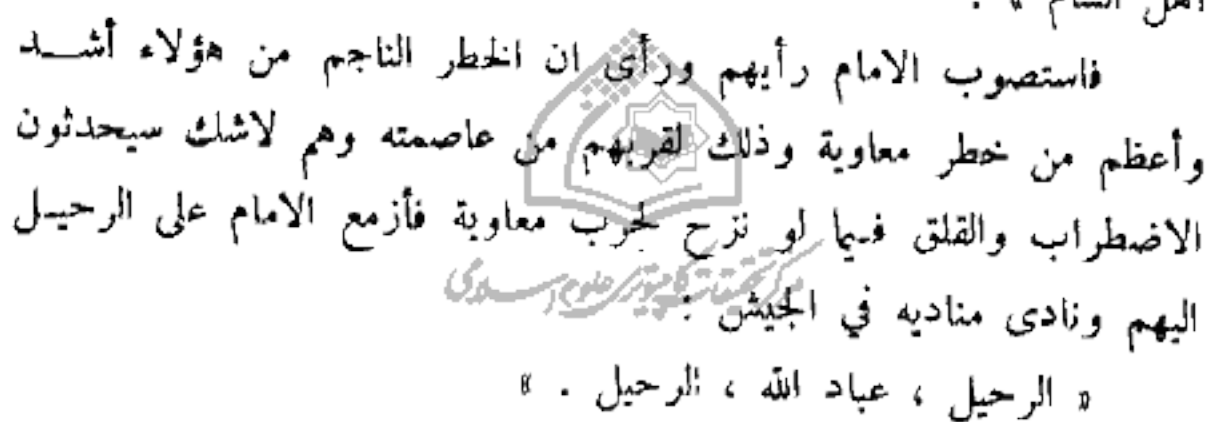 أهل الشام » .
فاستصوب الامام رأيهم ورأى ان الخطر الناجم من هؤلاء أشد
وأعظم من خطر معاوية وذلك لقربهم من عاصمته وهم لاشك سيحدثون
الاضطراب والقلق فيما لو نزح لحرب معاوية فأزمع الامام على الرحيل
اليهم ونادى مناديه في الجيش :
« الرحيل ، عباد الله ، الرحيل . »
مرکز تحقیقات کامپیوتری علوم اسلامی